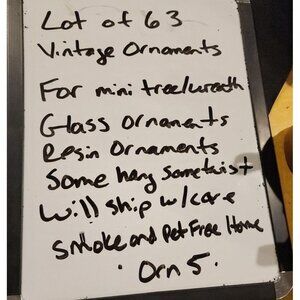 Lot of 63
Vintage Ornaments
For mini tree/wreath
Glass Ornaments
Resin Ornaments
Some hang Some twist
will ship w/care
smoke and Pet Free Home
. Orn 5.